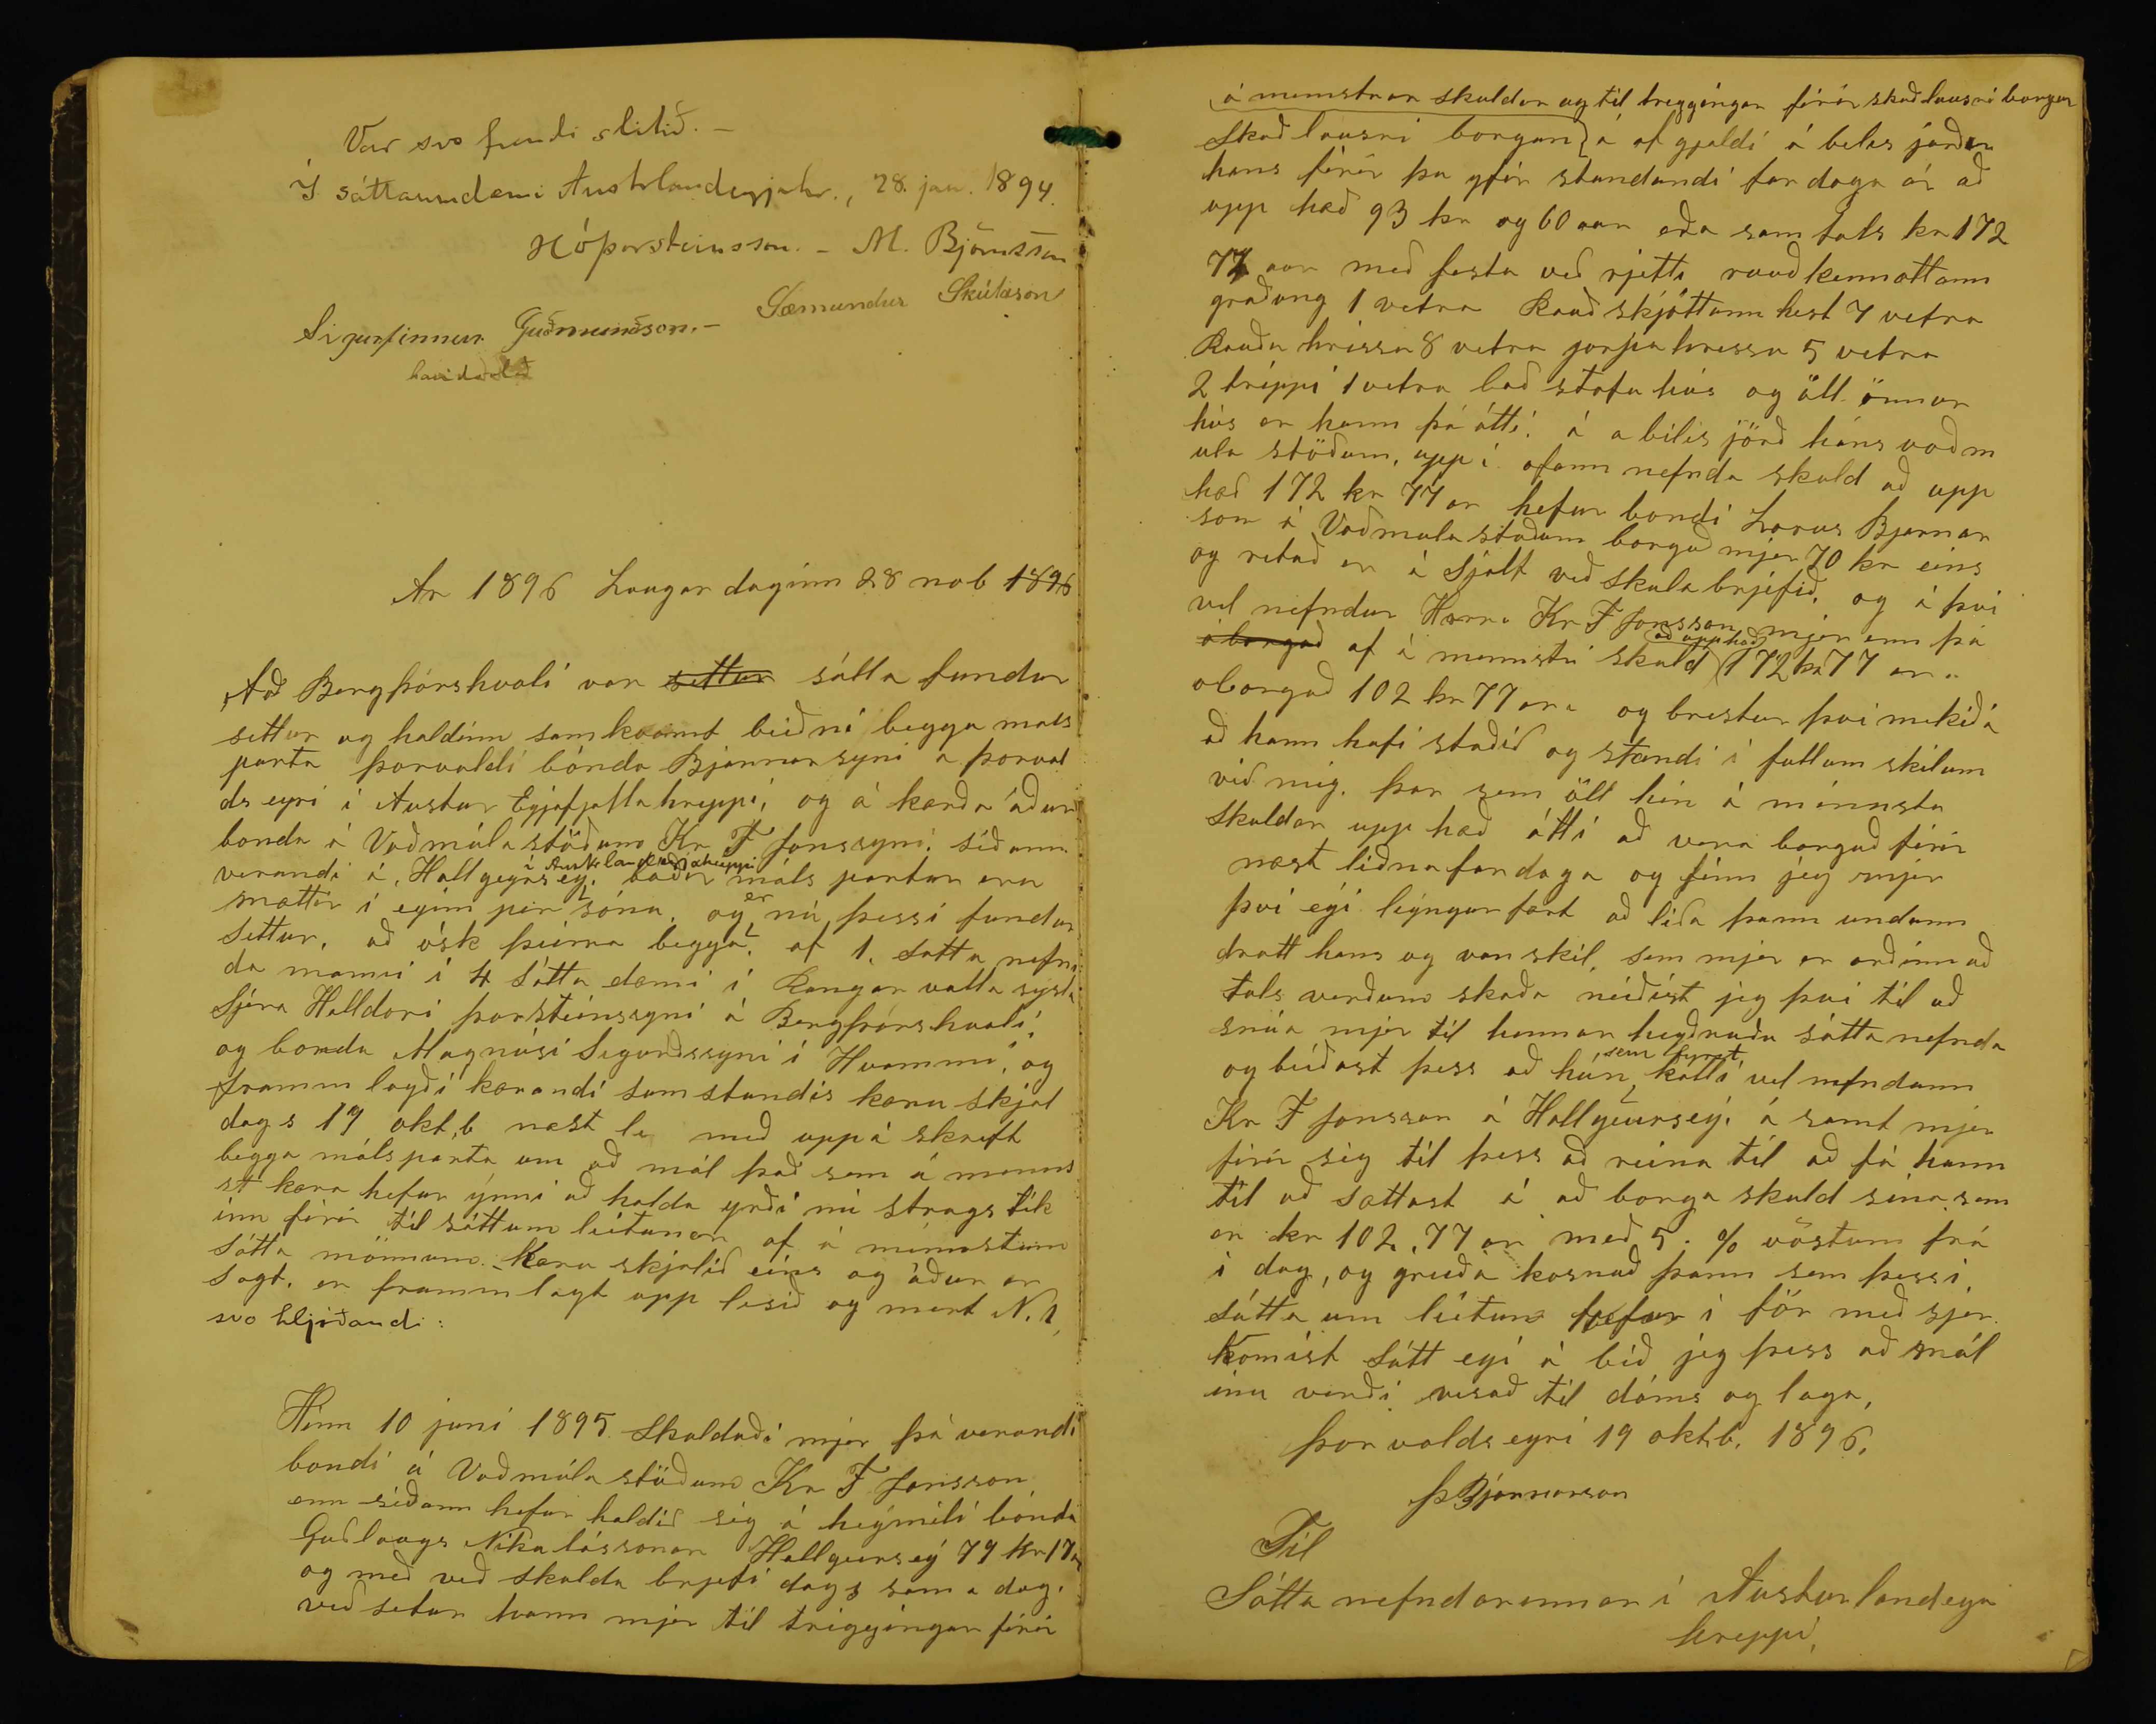 Var svo fundi slitið. –
Í sáttaumdæmi Austrlandeyjahr., 28. jan. 1894.
HÓÞorsteinsson. – M. Björnsson
Sæmundur Skúlason
Sigurfinnur Guðmundsson. –
handsalað
Ar 1896 Laugardaginn 28 nob 1896
Að Bergþórshvoli var settur sátta fundur
settur og haldinn samkvæmt beiðni beggja mals
parta Þorvaldi bónda Bjarnarsyni a Þorval
ds eyri i Austur Eyjafjalla hreppi, og á kærða áður
bonda á Voðmúla stöðum Kr. F Jonssyni. síðann
í Austrlandeyjahreppi
verandi á, Hallgeyrsey. baðir máls partar eru
mættir i eigin per sónu. og er nú þessi fundur
Settur, að ósk þeirra beggja. af 1. Satta nefn
da manni í 4 Sátta dæmi i Rangar valla syslu
Sjera Halldori Þorsteinssyni á Bergþórshvoli,
og bonda Magnúsi Sigurðssyni i Hvammi, og
framm lagði kærandi sam stundis kæru skjal
dags 19 okt,b næst l. með uppá skrift
beggja málsparta um að mál það sem á minns
st kæra hefur ynni að halda yrði nú strags tek
inn firir til sáttum leitunar af á minnstum
Sátta mönnum. Kæru skjalið eins og áður er
Sagt. er framm lagt upp lesið og mert N. 1,
svo hljóðandi:
Hinn 10 juni 1895. Skuldaði mjer þá verandi
bondi á Voðmúla stöðum Kr F Jonsson
enn síðann hefur haldið sig á heymili bónda
Guðlaugs Nikulássonar Hallgeirsey 79 kr 17 a
og með veð skulda brjefi dags sama dag.
veð setur hann mjer til triggingar firir
á mintrar skuldar og til treggingar firir skaðlausri borgun
Skað lausri borgun á af gjaldi á bílis jarðar
hans firir þa yfir standandi far daga ár að
upp hæð 93 kr og 60 aur eða sam tals kr 172
77 aur með festa veð rjetti rauðkinnottann
graðung 1 vetra Rauð skjóttann hest 7 vetra
Rauða hrissu 8 vetra jarpa hrissu 5 vetra
2 trippi 1 vetra bað stofu hús og öll önnur
hús er hann þá átti. á a bílis jörð hans voðm
ula stöðum, upp i ofann nefnda skuld að upp
hæð 172 kr 77 ar hefur bondi Larus Bjarnar
son á Voðmula stöðum borgað mjer 70 kr eins
og ritað er á Sjálft veð skulabrjefið. og á því
vel nefndur Herra Kr F Jonsson mjer enn þá
að upphæð
óborgað af á minnstri skuld 172 kr 77 ar.
oborgað 102 kr 77 ar. og brestur því mikið á
að hann hafi staðið og standi i fullum skilum
við mig. þar sem öll hin á minnsta
Skuldar upp hæð átti að vera borguð firir
næst liðna fardaga og finn jeg mjer
því egi leyngur fært að liða þann undann
drátt hans og van skil, sem mjer er orðinn að
tals verðum skaða neiðist jeg því til að
snúa mjer til hennar heyðruðu sátta nefnda
og beiðast þess að hún, sem fyrst kalli vel nefndann
Kr F Jonsson á Hallgeirsey, á samt mjer
firir sig til þess að reina til að fá hann
til að sættast á að borga skuld sína sem
er kr 102,77 ar með 5. % vöstum frá
i dag, og greiða kosnað þann sem þessi
Sátta um leitun hefur i för með sjer.
Komist Sátt egi á bið jeg þess að mál
inu verði visað til dóms og laga,
Þorvaldseyri 19 okt.b. 1896.
ÞBjarnarson
Til
Sátta nefndarinnar i Austurlandeya
hreppi,